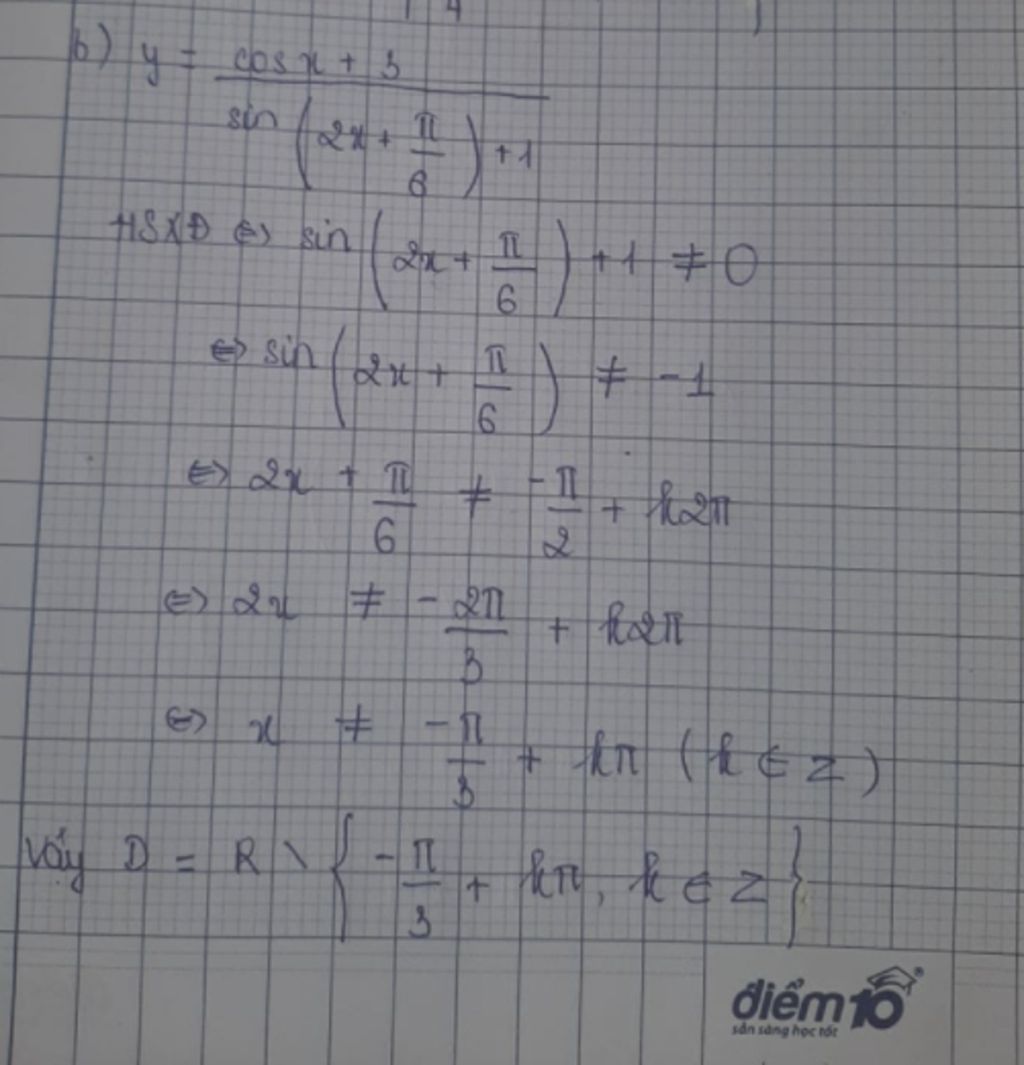 b) y = \frac{cos x + 3}{sin(2x + \frac{π}{6}) + 1}
HSXĐ ⇔ sin(2x + \frac{π}{6}) + 1 ≠ 0
⇔ sin(2x + \frac{π}{6}) ≠ -1
⇔ 2x + \frac{π}{6} ≠ \frac{-π}{2} + k2π
⇔ 2x ≠ -\frac{2π}{3} + k2π
⇔ x ≠ \frac{-π}{3} + kπ (k ∈ Z)
Vậy D = R \ { -\frac{π}{3} + kπ, k ∈ Z }
điểm10
sẵn sàng học tốt